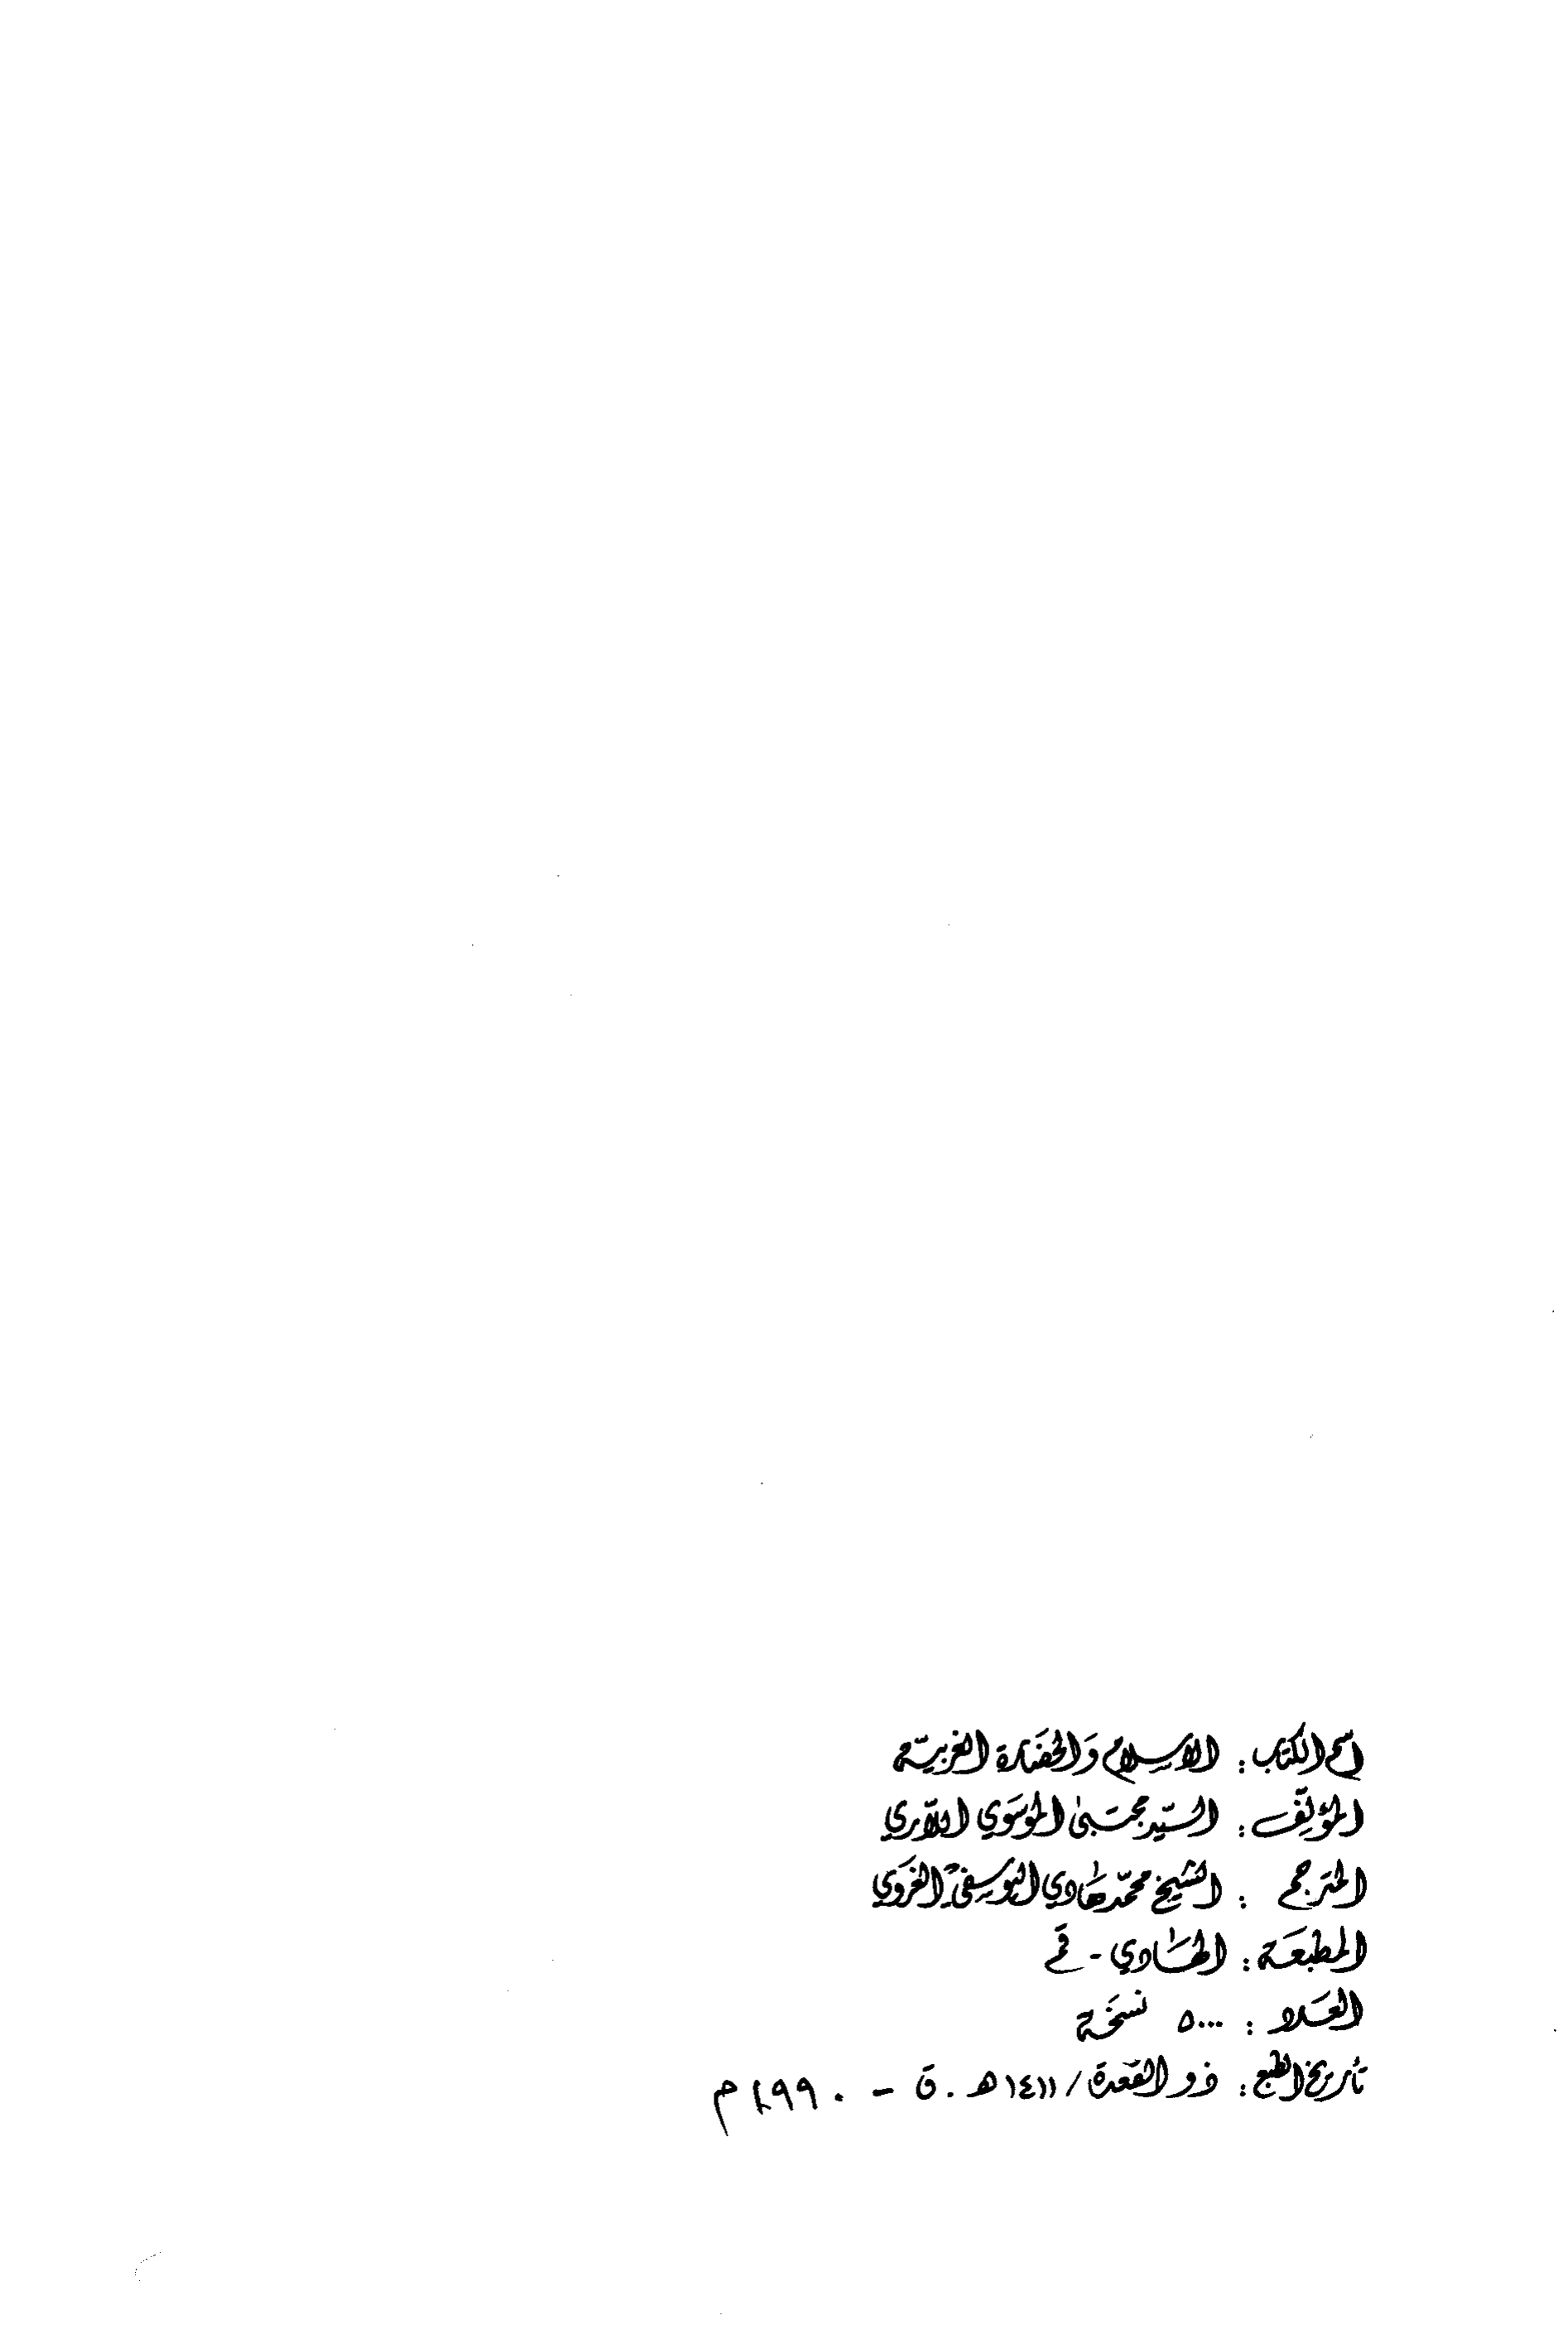 اسم الكتاب : الاسلام وَالحضَارة الغربيّة
المؤلّف : السيّد مجتبىٰ الموسَوي اللّاري
المترجم : الشيخ محمّد هَادي اليوسفي الغرَوي
المطبعَة : الهَادي - قم
العَدد : ٥٠٠٠ نسخَة
تأريخ الطبع : ذو القعدة / ١٤١١ هـ . ق - ١٩٩٠ م